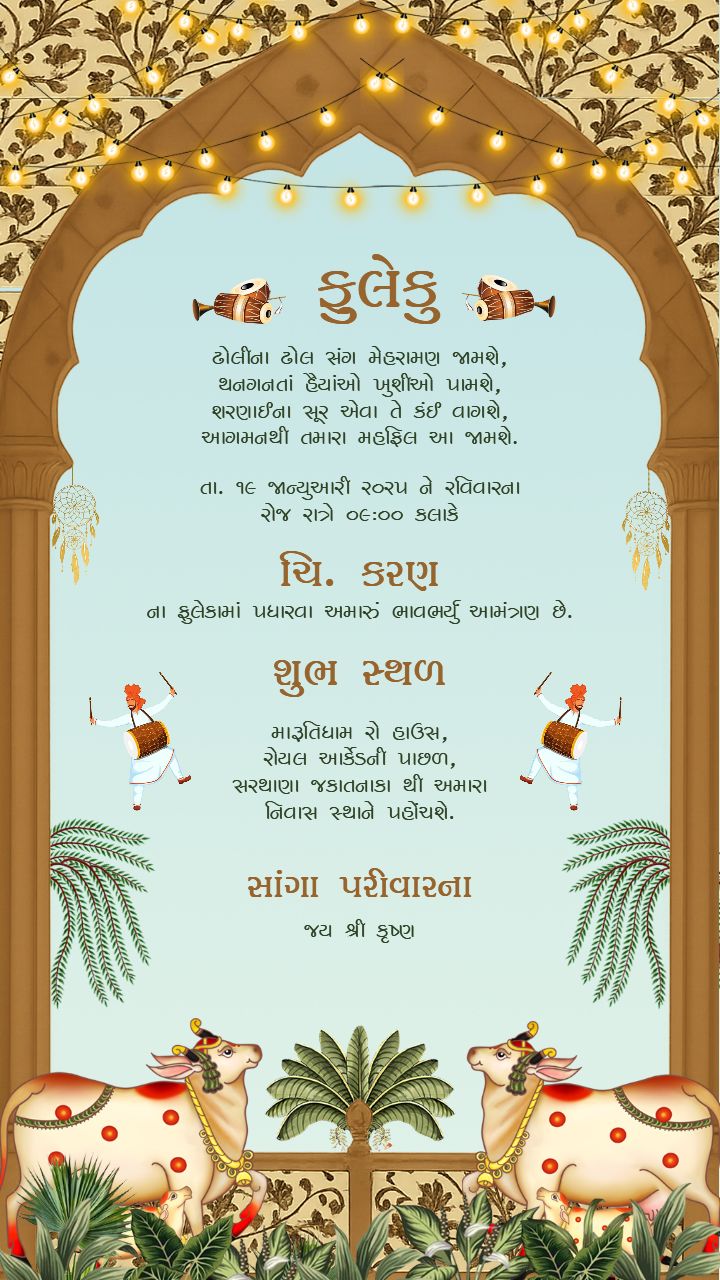 ફુલેકુ
ઢોલીના ઢોલ સંગ મેહરામણ જામશે,
થનગનતાં હૈયાંઓ ખુશીઓ પામશે,
શરણાઈના સૂર એવા તે કંઈ વાગશે,
આગમનથી તમારા મહફિલ આ જામશે.
તા. ૧૯ જાન્યુઆરી ૨૦૨૫ ને રવિવારના
રોજ રાત્રે ૦૯:૦૦ કલાકે
ચિ. કરણ
ના ફુલેકામાં પધારવા અમારું ભાવભર્યુ આમંત્રણ છે.
શુભ સ્થળ
મારૂતિધામ રો હાઉસ,
રોયલ આર્કેડની પાછળ,
સરથાણા જકાતનાકા થી અમારા
નિવાસ સ્થાને પહોંચશે.
સાંગા પરીવારના
જય શ્રી કૃષ્ણ